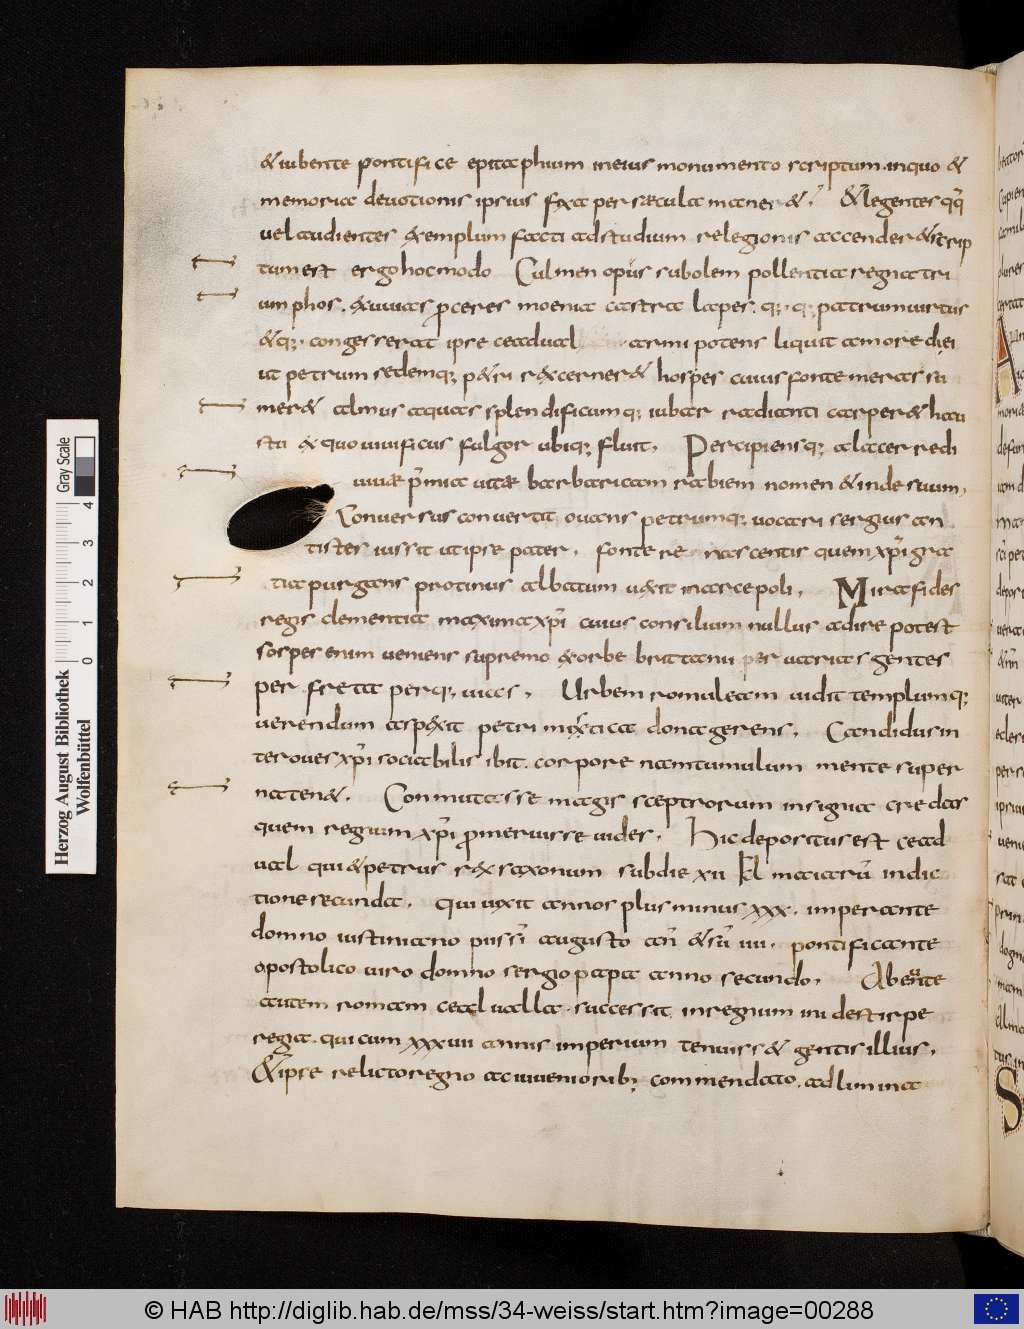 & iubente pontifice epitaphium ineius monumento scriptum. inquo &
memoria deuotionis ipsius fixa per saecula maner&. & legentes qq
uel audientes exemplum facti adstudium relegionis accender& scrip
tum est ergo hoc modo Culmen opus subolem pollentia regna tri
um phos. exuuias proceres moenia castra lapes. q; q; patrum uirtus
& q; congesserat ipse ceadual armi potens liquit amore diei
ut petrum sedemq; p&ri rex cerner& hospes cuius fonte meras su
mer& almus aquas splendificumq; iubar radianti carper& hau
stu ex quo uiuificus fulgor ubiq; fluit. Percipiensq; alacer redi
uiuae pmia uitae barbaricam rabiem nomen & inde suum.
Conuersus conuertit ouans petrumq; uocari sergius an
tistes iussit ut ipse pater. fonte re nascentis quem xpi gra
tia purgans protinus albatum uexit in arce poli. Mira fides
regis clementia maxima xpi cuius consilium nullus adire potest
sospes enim ueniens supremo ex orbe brittanni per uarias gentes
per freta perq; uias. Urbem romuleam uidit templumq;
uerendum aspexit petri mixtica dona gerens. Candidus in
ter oues xpi sociabilis ibit. corpore nam tumulum mente super
na ten&. Conmutasse magis sceptrorum insignia credas
quem regnum xpi promeruisse uides. Hic depositus est cead
ual qui & petrus rex saxonum sub die xii kl maiaru indic
tione secunda. qui uixit annos plus minus xxx. imperante
domno iustiniano piissi augusto an & su iiii. pontificante
apostolico uiro domno sergio papa anno secundo. Abeunte
autem romam ceadualla successit inregnum ini de stirpe
regia. qui cum xxxuii annis imperium tenuiss& gentis illius.
& ipse relicto regno ac iuuenioribus commendato. ad limina
Herzog August Bibliothek
Wolfenbüttel
0 1 2 3 4
Gray Scale
© HAB http://diglib.hab.de/mss/34-weiss/start.htm?image=00288